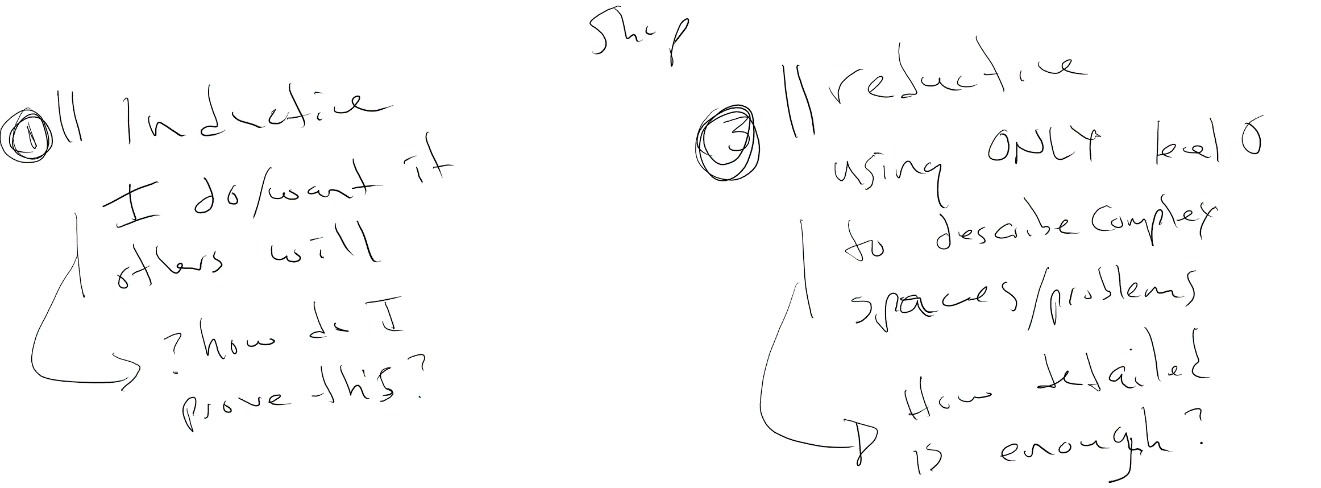 Shop
① || Inductive
I do/want it
others will
? how do I
prove this?
③ || reductive
using ONLY level 0
to describe complex
spaces/problems
How detailed
is enough?